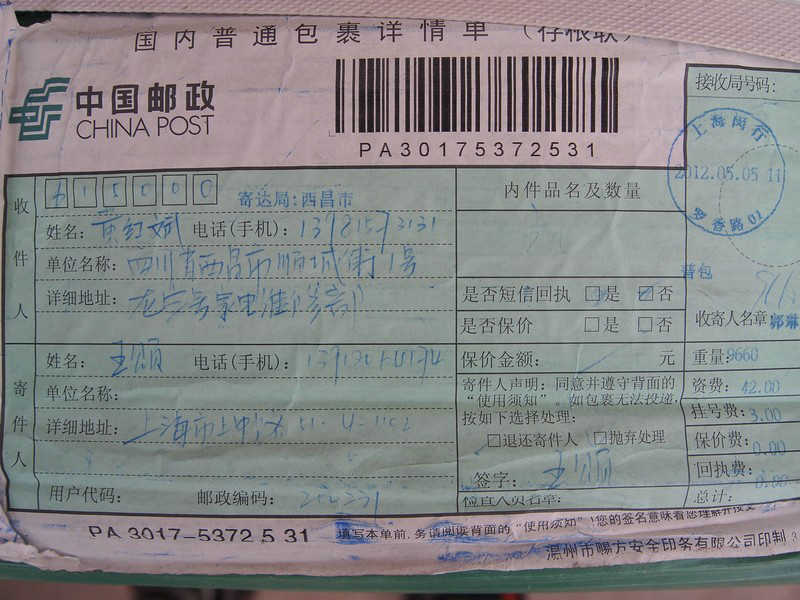 国内普通包裹详情单(存根联)
中国邮政
CHINA POST
PA30175372531
接收局号码:
上海闵行
2012.05.05 11
罗香路 02
收件人
615000
寄达局:西昌市
姓名: 电话(手机):
单位名称:四川省西昌市顺城街1号
详细地址:
内件品名及数量
是否短信回执 □是 ☑否
是否保价 □是 □否
普包
收寄人名章
寄件人
姓名:王颂 电话(手机):
单位名称:
详细地址:上海市
用户代码: 邮政编码:
保价金额: 元
寄件人声明:同意并遵守背面的
“使用须知”。如包裹无法投递,
按如下选择处理:
□退还寄件人 □抛弃处理
签字:王颂
检查人员名章:
重量:9660
资费:42.00
挂号费:3.00
保价费:0.00
回执费:0.00
总计:
PA 3017-5372 5 31
填写本单前,务请阅读背面的“使用须知”!您的签名意味着您理解并接受
温州市赐方安全印务有限公司印制